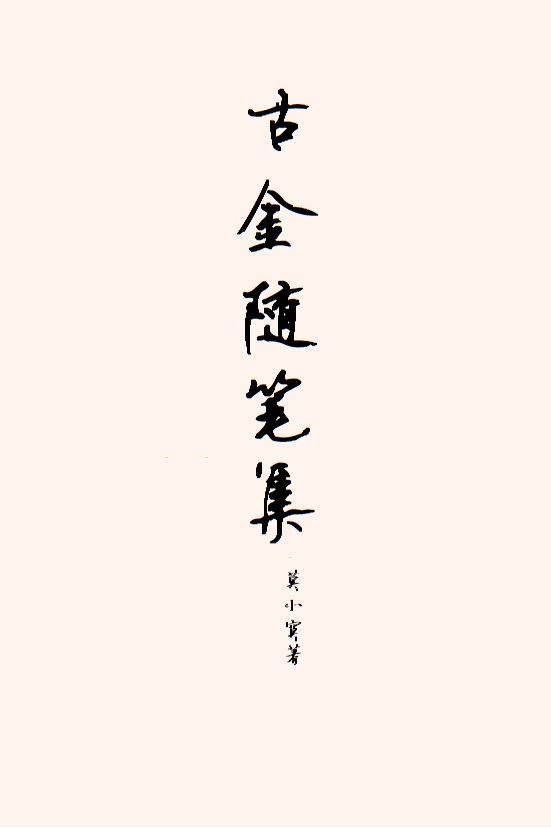 古金随笔集
莫小寳著